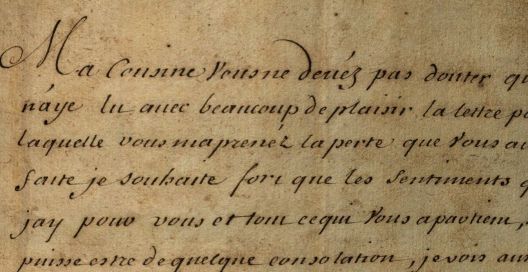 Ma Cousine Vous ne devéz pas douter qu
n'aye lu avec beaucoup de plaisir la lettre pa
laquelle vous maprenéz la perte que Vous av
faite je souhaite fort que les Sentiments q
jay pour vous et tout ce qui Vous apartient,
puisse estre de quelque consolation, je vois au